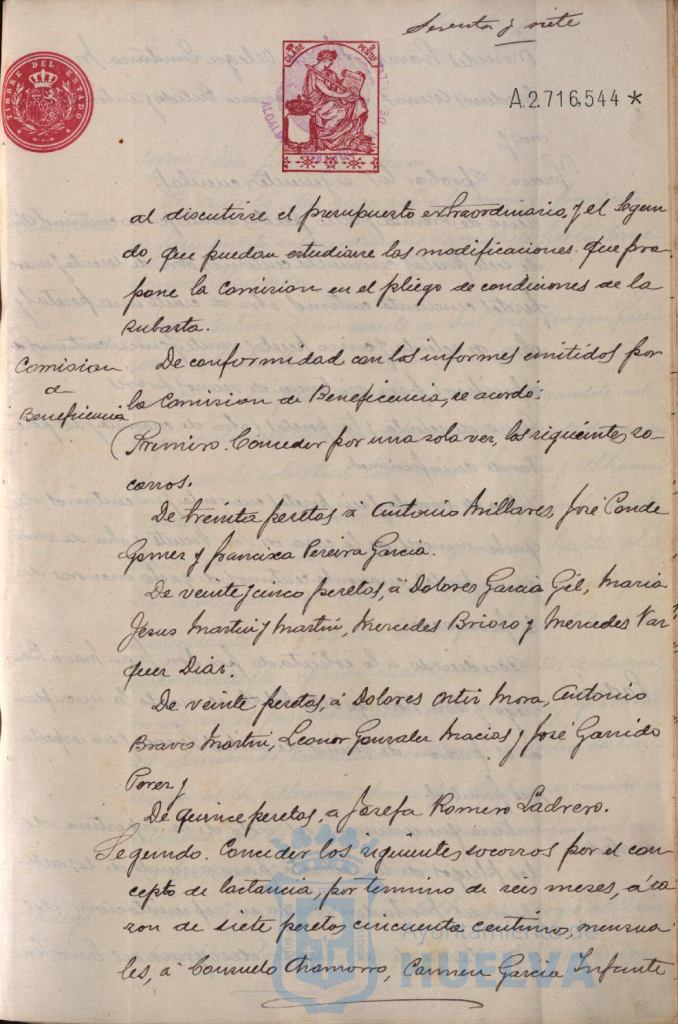 Sesenta y siete
TIMBRE DEL ESTADO
10ª CLASE 2 PESETAS
A.2.716,544*
al discutirse el presupuesto extraordinario, y el Segun-
do, que puedan estudiarse las modificaciones que pro-
pone la Comision en el pliego de condiciones de la
subasta.
Comision
de
Beneficencia
De conformidad con los informes emitidos por
la Comision de Beneficencia, se acordó:
Primero. Conceder por una sola vez, los siguientes so-
corros.
De treinta pesetas á Antonio Millares, José Conde
Gomez y Francisca Pereira Garcia.
De veinte y cinco pesetas, á Dolores Garcia Gil, Maria
Jesus Martin y Martin, Mercedes Brioso y Mercedes Vaz
quez Diaz.
De veinte pesetas, á Dolores Ortiz Mora, Antonio
Bravo Martin, Leonor Gonzalez Macias y José Garrido
Perez y
De quince pesetas, a Josefa Romero Ladrero.
Segundo. Conceder los siguientes socorros por el con-
cepto de lactancia, por termino de seis meses, á ra-
zon de siete pesetas cincuenta centimos, mensua-
les, á Consuelo Chamorro, Carmen Garcia Infante
Ayuntamiento de
HUELVA